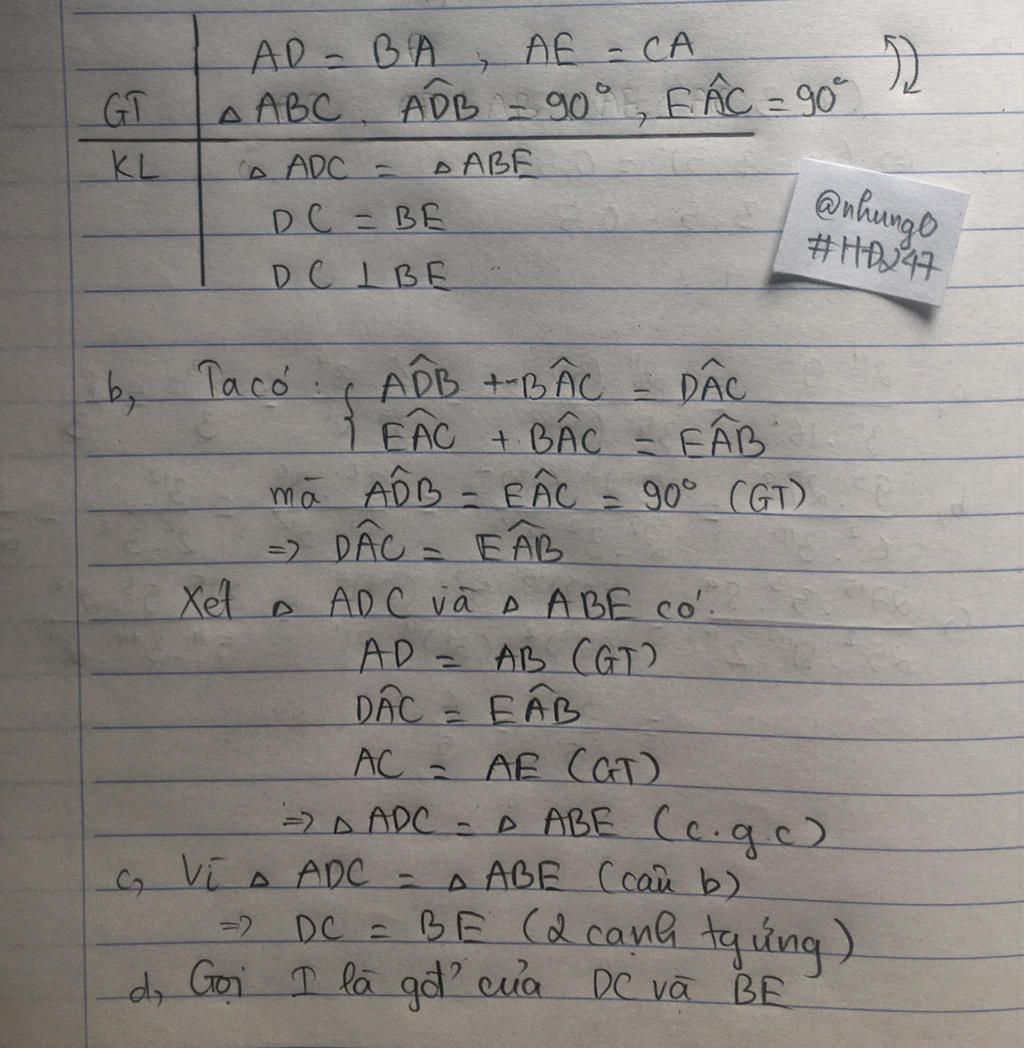 AD = BA , AE = CA
GT △ABC. AD̂B = 90°, EÂC = 90°
KL △ ADC = △ABE
DC = BE
DC ⊥ BE
@nhung0
b, Ta có : { AD̂B + BÂC = DÂC
EÂC + BÂC = EÂB
mà AD̂B = EÂC = 90° (GT)
=> DÂC = EÂB
Xét △ ADC và △ ABE có:
AD = AB (GT)
DÂC = EÂB
AC = AE (GT)
=> △ADC = △ ABE (c.g.c)
c, Vì △ ADC = △ABE (câu b)
=> DC = BE (2 cạnh tg ứng)
d, Gọi I là gđ' của DC và BE